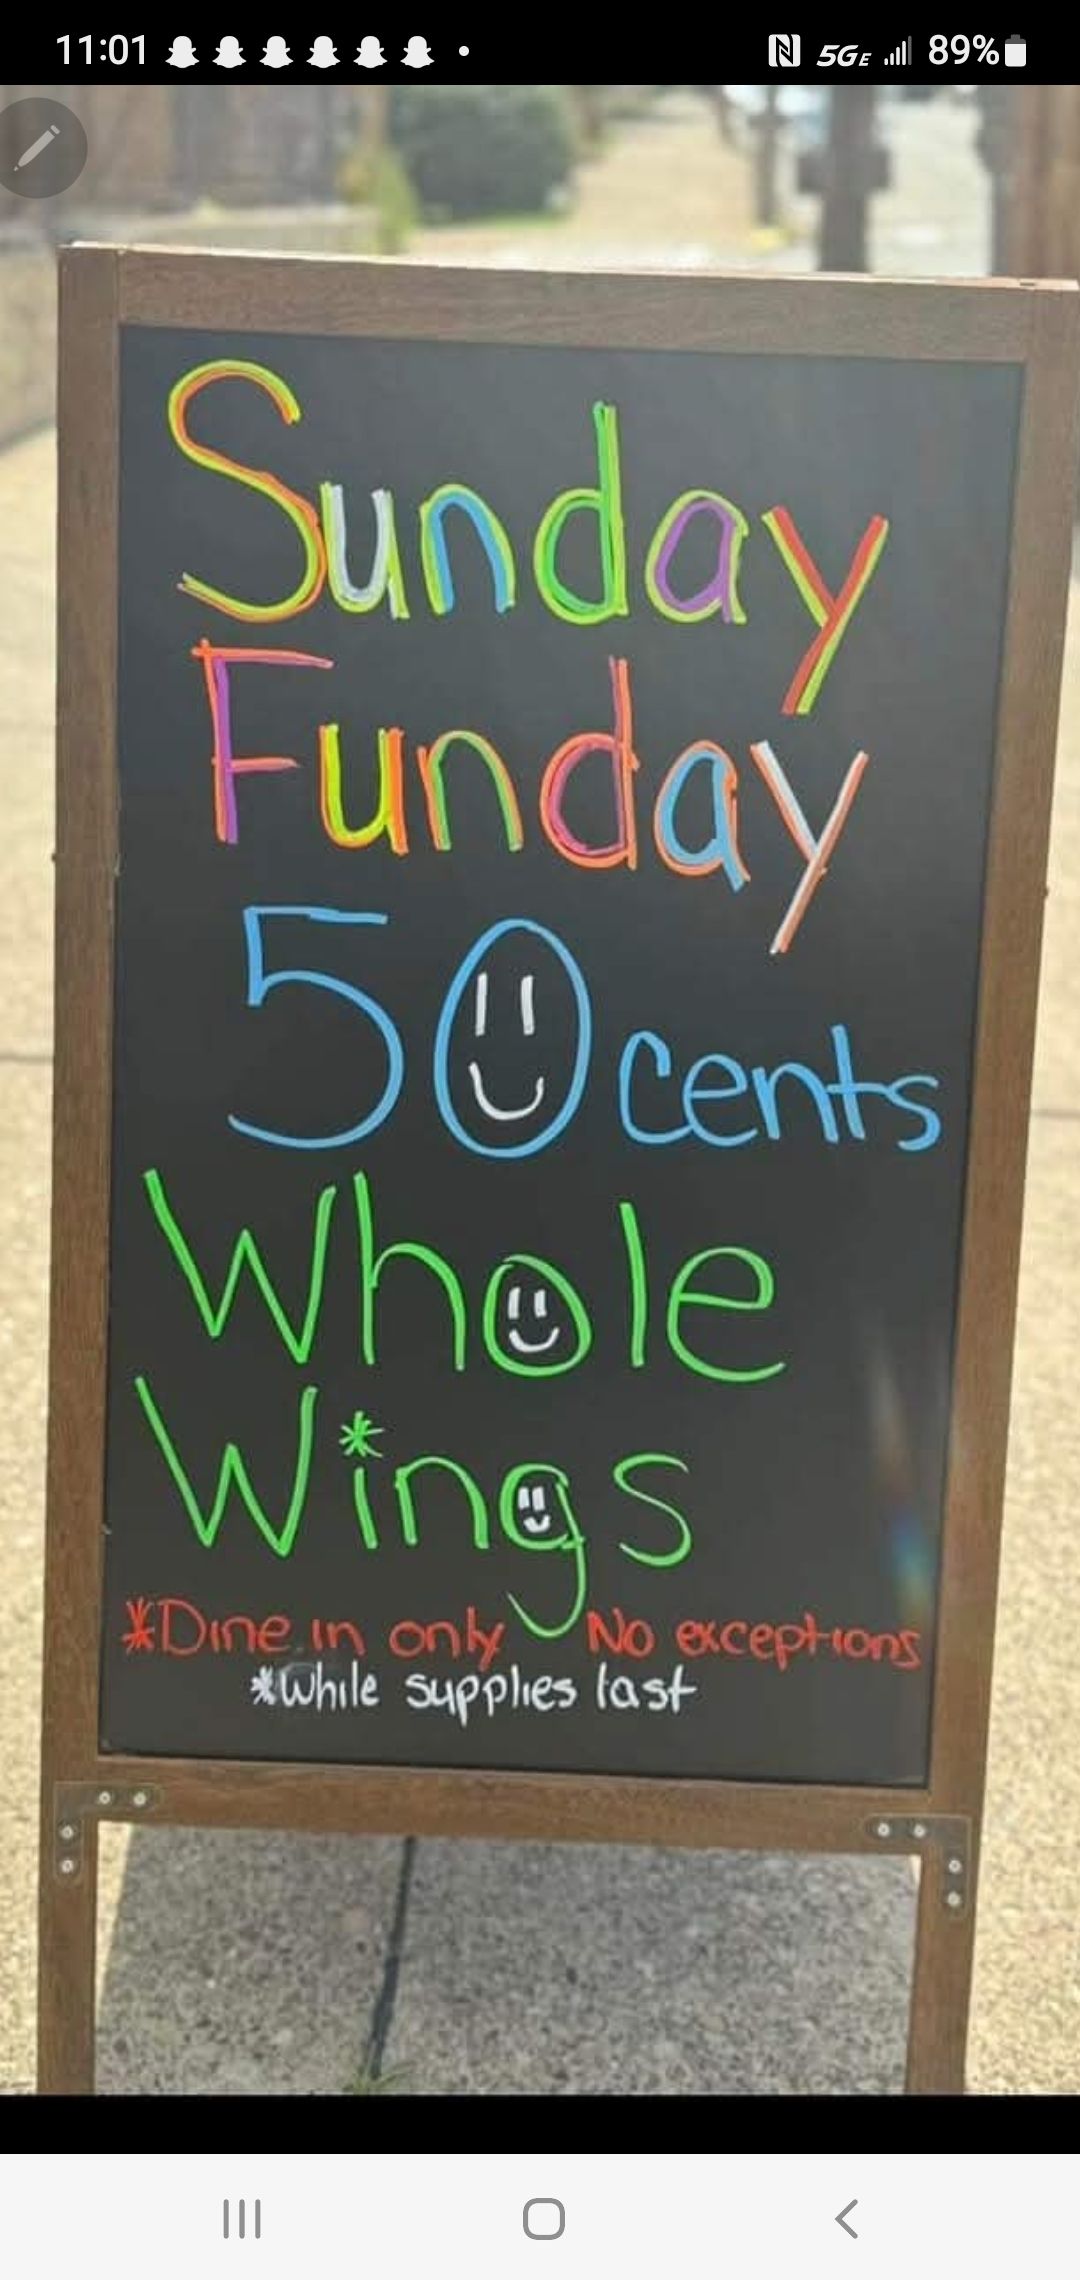 11:01 5GE 89%
Sunday
Funday
50 cents
Whole
Wings
*Dine in only No exceptions
*While supplies last